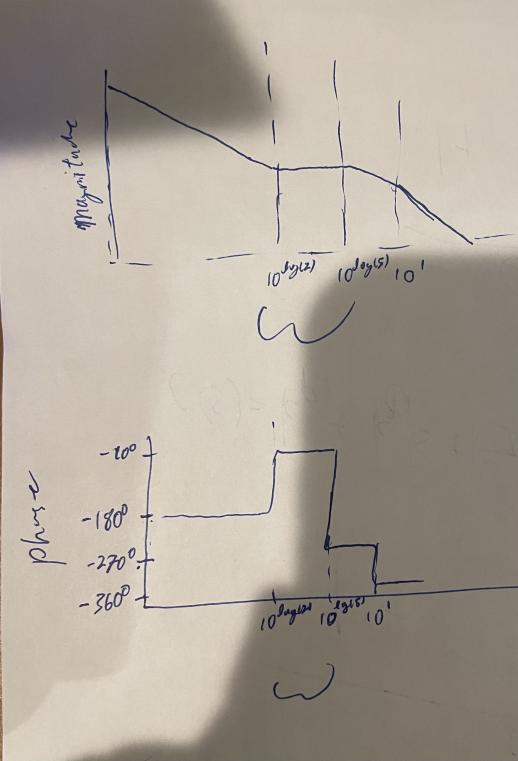 Magnitude
10^log(2)
10^log(5)
10^1
ω
Phase
-180°
-270°
-360°
10^log(2)
10^log(5)
10^1
ω